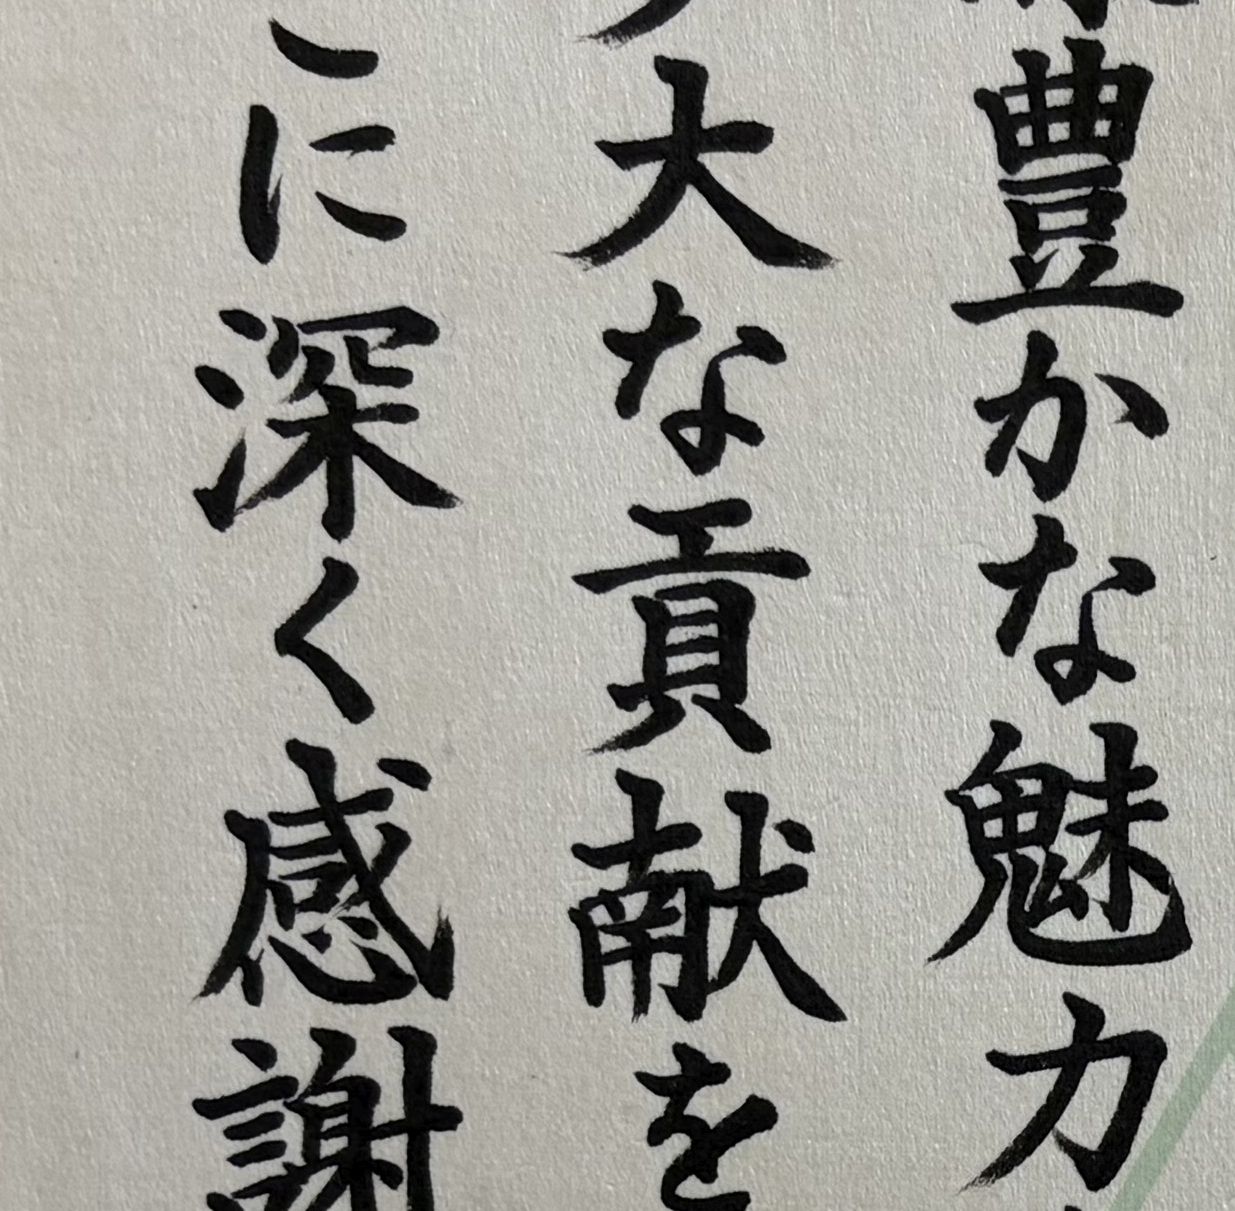 豊かな魅力
大な貢献を
に深く感謝